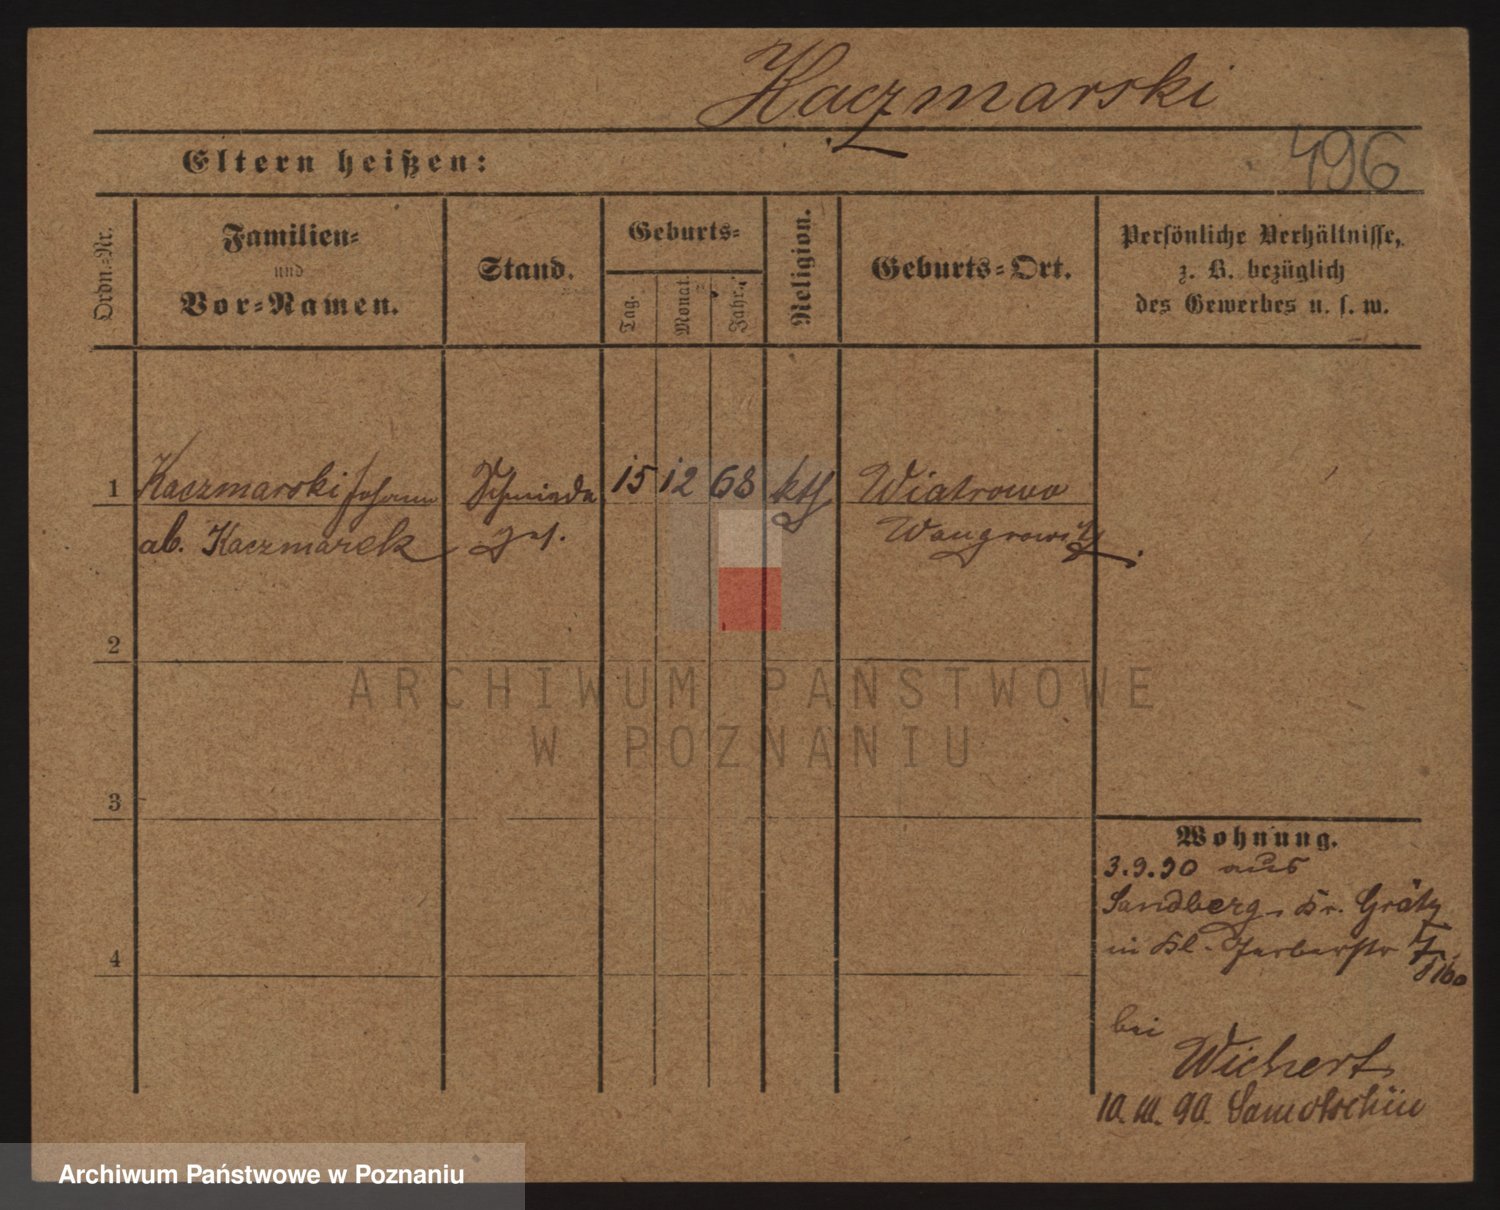 Kaczmarski
496
Eltern heißen:
Ordn.-Nr.
Familien-
und
Vor-Namen.
Stand.
Geburts-
Tag.
Monat.
Jahr.
Religion.
Geburts-Ort.
Persönliche Verhältnisse,
z. B. bezüglich
des Gewerbes u. s. w.
1 Kaczmarski Johann Schmiede 15 12 68 kth Wiatrowo
ab. Kaczmarek ges. Wangrowitz
2
ARCHIWUM PAŃSTWOWE
W POZNANIU
3
Wohnung.
3.9.90 aus
Sandberg, Kr. Grätz
4
in Kl. Gerberstr 7
bei
Wichert
10. 10. 90. Samotschin
Archiwum Państwowe w Poznaniu